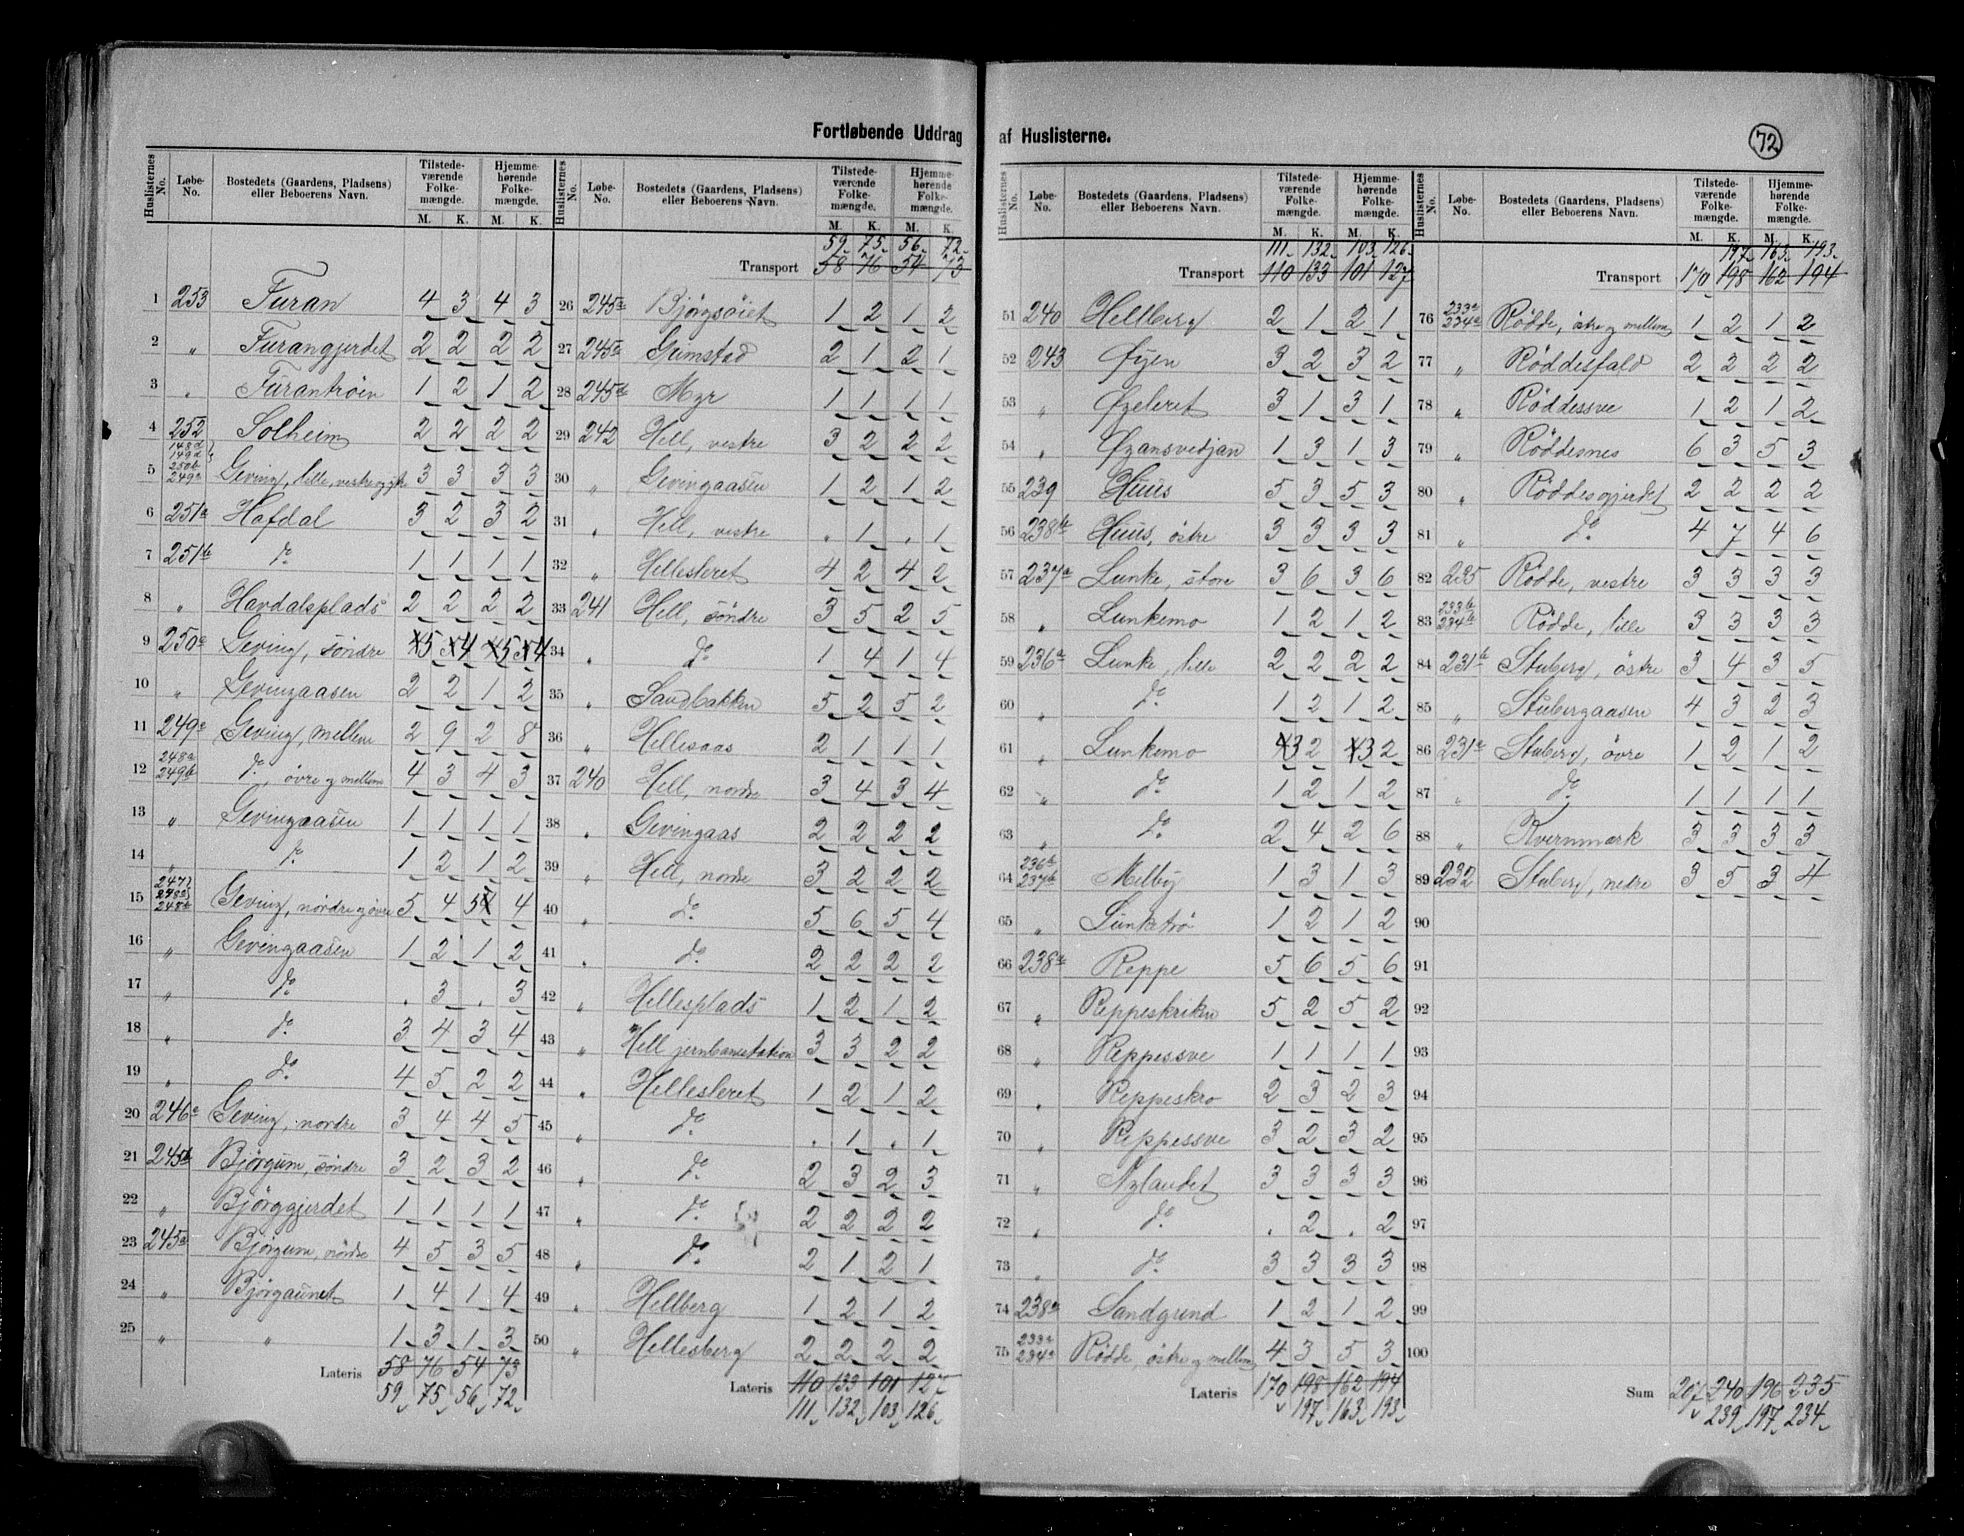 Fortløbende Uddrag af Huslisterne.
72
Huslisternes No. Løbe-No. Bostedets (Gaardens, Pladsens) eller Beboerens Navn. Tilstedeværende Folkemængde. M. K. Hjemmehørende Folkemængde. M. K.
1 253 Furan 4 3 4 3
2 " Furangjerdet 2 2 2 2
3 " Furantrøen 1 2 1 2
4 252 Solheim 2 2 2 2
5 148d 149d 250b 249a Geving, lille, vestre 3 3 3 3
6 251a Hafdal 3 2 3 2
7 251b do 1 1 1 1
8 " Havdalsplads 2 2 2 2
9 250a Geving, søndre 5 4 5 4
10 " Gevingaasen 2 2 1 2
11 249c Geving, mellem 2 9 2 8
12 248a 249b do, övre og mellem 4 3 4 3
13 " Gevingaasen 1 1 1 1
14 " do 1 2 1 2
15 247 248a 248b Geving, nördre og övre 5 4 5 4
16 " Gevingaasen 1 2 1 2
17 " do . 3 . 3
18 " do 3 4 3 4
19 " do 4 5 2 2
20 246a Geving, nordre 3 4 4 5
21 245b Bjørgum, söndre 3 2 3 2
22 " Bjørggjerdet 1 1 1 1
23 245a Bjørgum, nördre 4 5 3 5
24 " Bjørgaunet 1 4 1 4
25 " " 1 3 1 3
Lateris 58 76 54 73
59 75 56 72
Huslisternes No. Løbe-No. Bostedets (Gaardens, Pladsens) eller Beboerens Navn. Tilstedeværende Folkemængde. M. K. Hjemmehørende Folkemængde. M. K.
59 75 56 72
Transport 58 76 54 73
26 245a Bjørgsøiet 1 2 1 2
27 245a Gumstad 2 1 2 1
28 245a Myr 1 1 1 1
29 242 Hell, vestre 3 2 2 2
30 " Gevingaasen 1 2 1 2
31 " Hell, vestre . 1 . 1
32 " Hellesleret 4 2 4 2
33 241 Hell, söndre 3 5 2 5
34 " do 1 4 1 4
35 " Sandbakken 5 2 5 2
36 " Hellesaas 2 1 1 1
37 240 Hell, nordre 3 4 3 4
38 " Gevingaas 2 2 2 2
39 " Hell, nordre 3 2 2 2
40 " do 5 6 5 4
41 " do 2 2 2 2
42 " Hellesplads 1 2 1 2
43 " Hell jernbanestation 3 3 2 2
44 " Hellesleret 1 2 1 2
45 " do . 1 . 1
46 " do 2 3 2 3
47 " do 2 2 2 2
48 " do 2 1 2 1
49 " Hellberg 1 2 1 2
50 " Hellesberg 2 2 2 2
Lateris 110 133 101 127
111 132 103 126
Huslisternes No. Løbe-No. Bostedets (Gaardens, Pladsens) eller Beboerens Navn. Tilstedeværende Folkemængde. M. K. Hjemmehørende Folkemængde. M. K.
111 132 103 126
Transport 110 133 101 127
51 240 Hellberg 2 1 2 1
52 243 Øyen 3 2 3 2
53 " Øyeleret 3 1 3 1
54 " Øyansvedjan 1 3 1 3
55 239 Huus 5 3 5 3
56 238b Huus, östre 3 3 3 3
57 237a Lunke, store 3 6 3 6
58 " Lunkemo 1 2 1 2
59 236a Lunke, lille 2 2 2 2
60 " do 1 2 1 2
61 " Lunkemo 3 2 3 2
62 " do 1 2 1 2
63 " do 2 4 2 6
64 236b 237b Melby 1 3 1 3
65 " Lunketrö 1 2 1 2
66 238a Reppe 5 6 5 6
67 " Reppeskriken 5 2 5 2
68 " Reppessve 1 1 1 1
69 " Reppeskro 2 3 2 3
70 " Reppessve 3 2 3 2
71 " Nylandet 3 3 3 3
72 " do . 2 . 2
73 " do 3 3 3 3
74 238a Sandgrund 1 2 1 2
75 233a 234a Rödde, östre og mellem 4 3 5 3
Lateris 170 198 162 194
197 163 193
Huslisternes No. Løbe-No. Bostedets (Gaardens, Pladsens) eller Beboerens Navn. Tilstedeværende Folkemængde. M. K. Hjemmehørende Folkemængde. M. K.
197 163 193
Transport 170 198 162 194
76 233a 234a Rödde, östre og mellem 1 2 1 2
77 " Röddesfald 2 2 2 2
78 " Röddessve 1 2 1 2
79 " Röddesnes 6 3 5 3
80 " Röddesgjerdet 2 2 2 2
81 " do 4 7 4 6
82 235 Rödde, vestre 3 3 3 3
83 233b 234b Rödde, lille 3 3 3 3
84 231b Stuberg, östre 3 4 3 5
85 " Stubergaasen 4 3 2 3
86 231a Stuberg, övre 1 2 1 2
87 " do 1 1 1 1
88 " Kvernmark 3 3 3 3
89 232 Stuberg, nedre 3 5 3 4
90
91
92
93
94
95
96
97
98
99
100
Sum 207 240 196 235
239 197 234